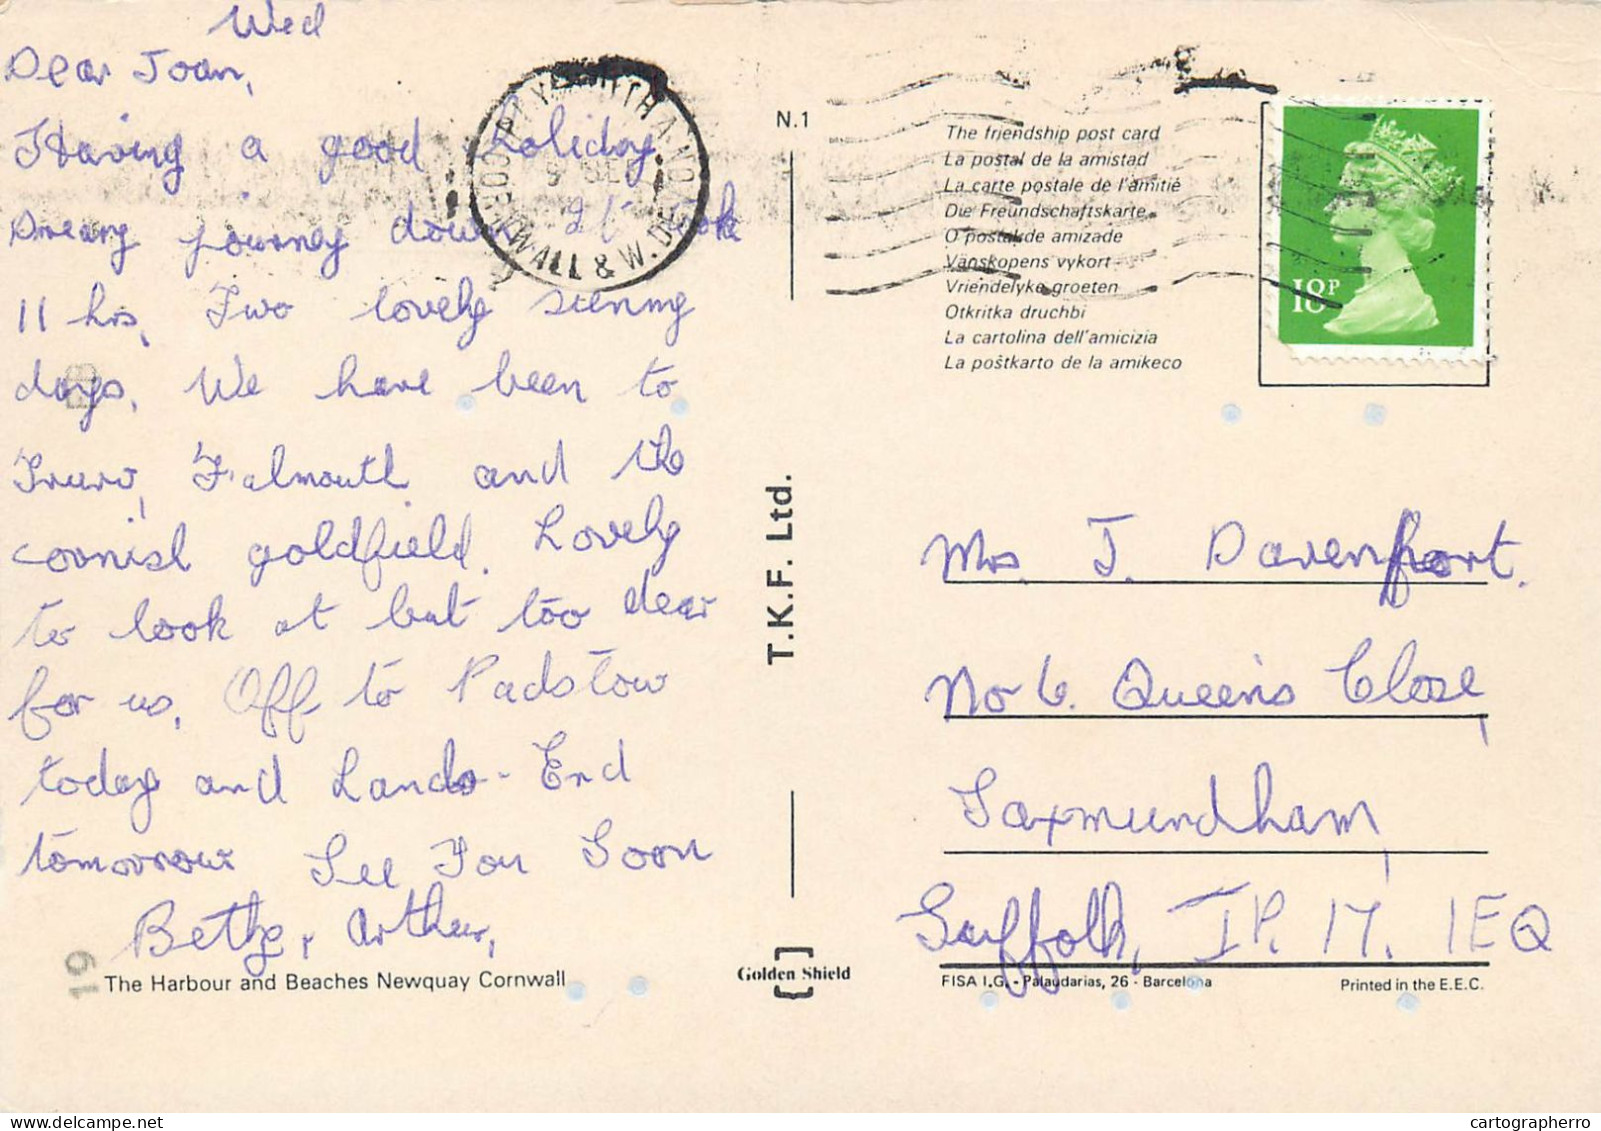 Wed
Dear Joan,
Having a good holiday
Dreary journey down It took
11 hrs, Two lovely sunny
days, We have been to
Truro, Falmouth and the
cornish goldfield. Lovely
to look at but too dear
for us, Off to Padstow
today and Lands-End
tomorrow See You Soon
Bethy, Arthur,
19
The Harbour and Beaches Newquay Cornwall
PLYMOUTH AND
CORNWALL & W. DEVON
N.1
T.K.F. Ltd.
Golden Shield
The friendship post card
La postal de la amistad
La carte postale de l'amitié
Die Freundschaftskarte
O postal de amizade
Vänskopens vykort
Vriendelyke groeten
Otkritka druchbi
La cartolina dell'amicizia
La poŝtkarto de la amikeco
18P
Mrs. J. Davenport.
No 6. Queen's Close,
Saxmundham,
Suffolk, IP. 17. 1EQ
FISA I.G. - Palaudarias, 26 - Barcelona
Printed in the E.E.C.
cartographerro